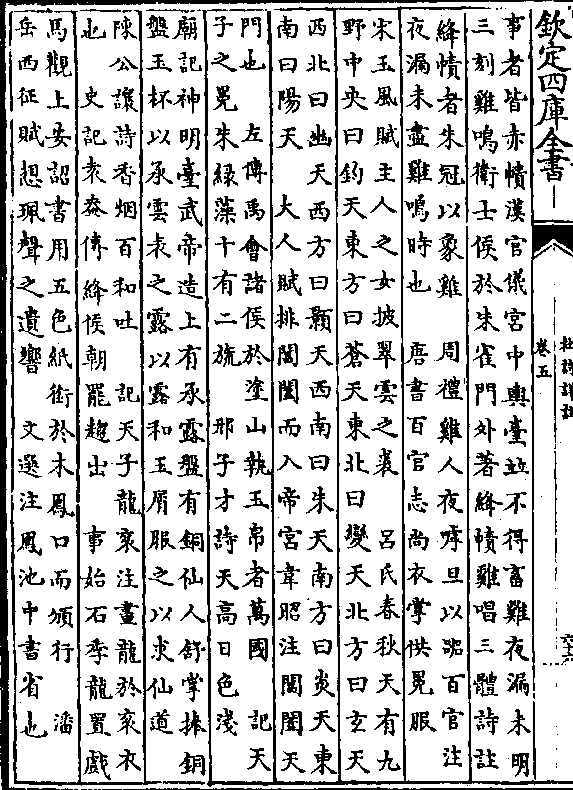 欽定四庫全書
杜詩詳註
卷五
事者皆赤幘漢官儀宮中輿臺並不得畜雞夜漏未明
三刻雞鳴衛士候於朱雀門外著絳幘雞唱三體詩註
絳幘者朱冠以象雞 周禮雞人夜嘑旦以嘂百官注
夜漏未盡雞鳴時也 唐書百官志尚衣掌供冕服
宋玉風賦主人之女披翠雲之裘 呂氏春秋天有九
野中央曰鈞天東方曰蒼天東北曰變天北方曰玄天
西北曰幽天西方曰顥天西南曰朱天南方曰炎天東
南曰陽天 大人賦排閶闔而入帝宮韋昭注閶闔天
門也 左傳禹會諸侯於塗山執玉帛者萬國 記天
子之冕朱綠藻十有二旒 邢子才詩天高日色淺
廟記神明臺武帝造上有承露盤有銅仙人舒掌捧銅
盤玉杯以承雲表之露以露和玉屑服之以求仙道
陳公讓詩香烟百和吐 記天子龍袞注畫龍於袞衣
也 史記袁盎傳絳侯朝罷趨出 事始石季龍置戲
馬觀上安詔書用五色紙銜於木鳳口而頒行 潘
岳西征賦想珮聲之遺響 文選注鳳池中書省也